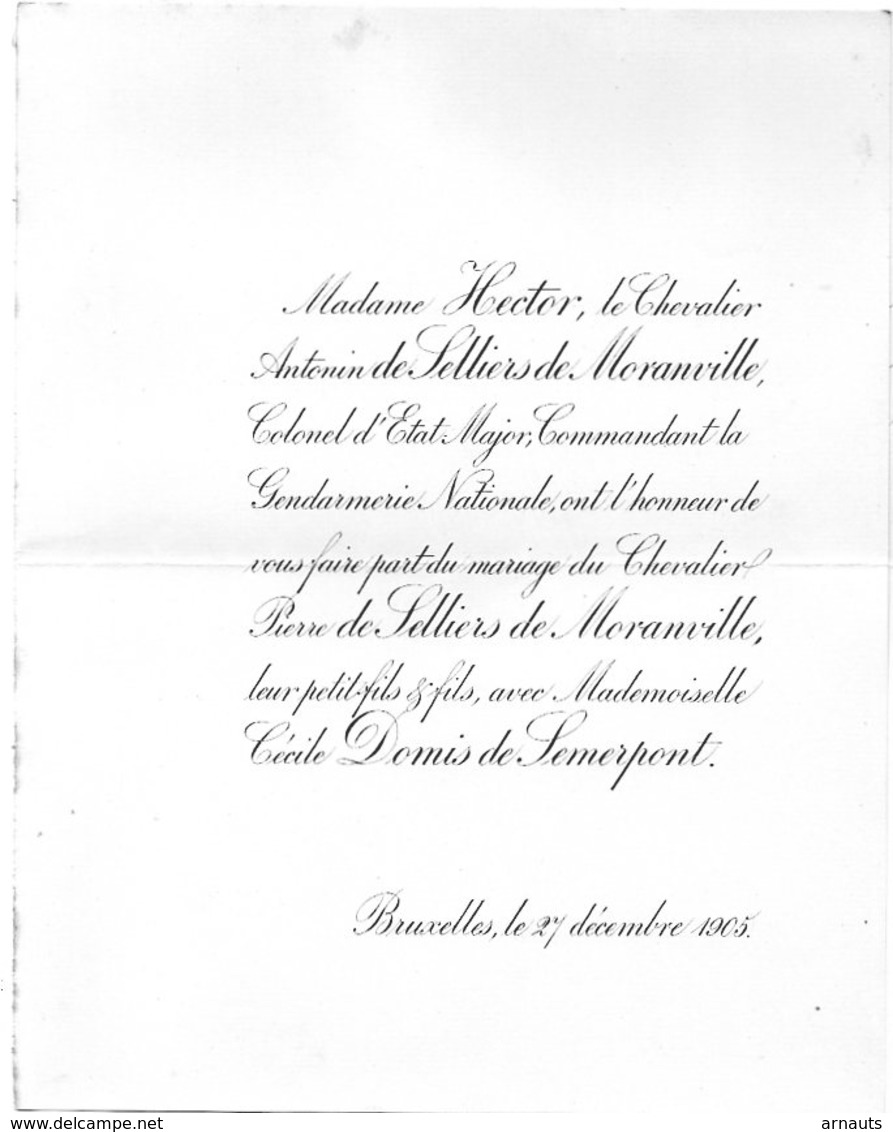 Madame Hector, le Chevalier
Antonin de Selliers de Moranville,
Colonel d'Etat-Major, Commandant la
Gendarmerie Nationale, ont l'honneur de
vous faire part du mariage du Chevalier
Pierre de Selliers de Moranville,
leur petit-fils & fils, avec Mademoiselle
Cécile Domis de Semerpont.
Bruxelles, le 27 décembre 1905.
www.delcampe.net
arnauts